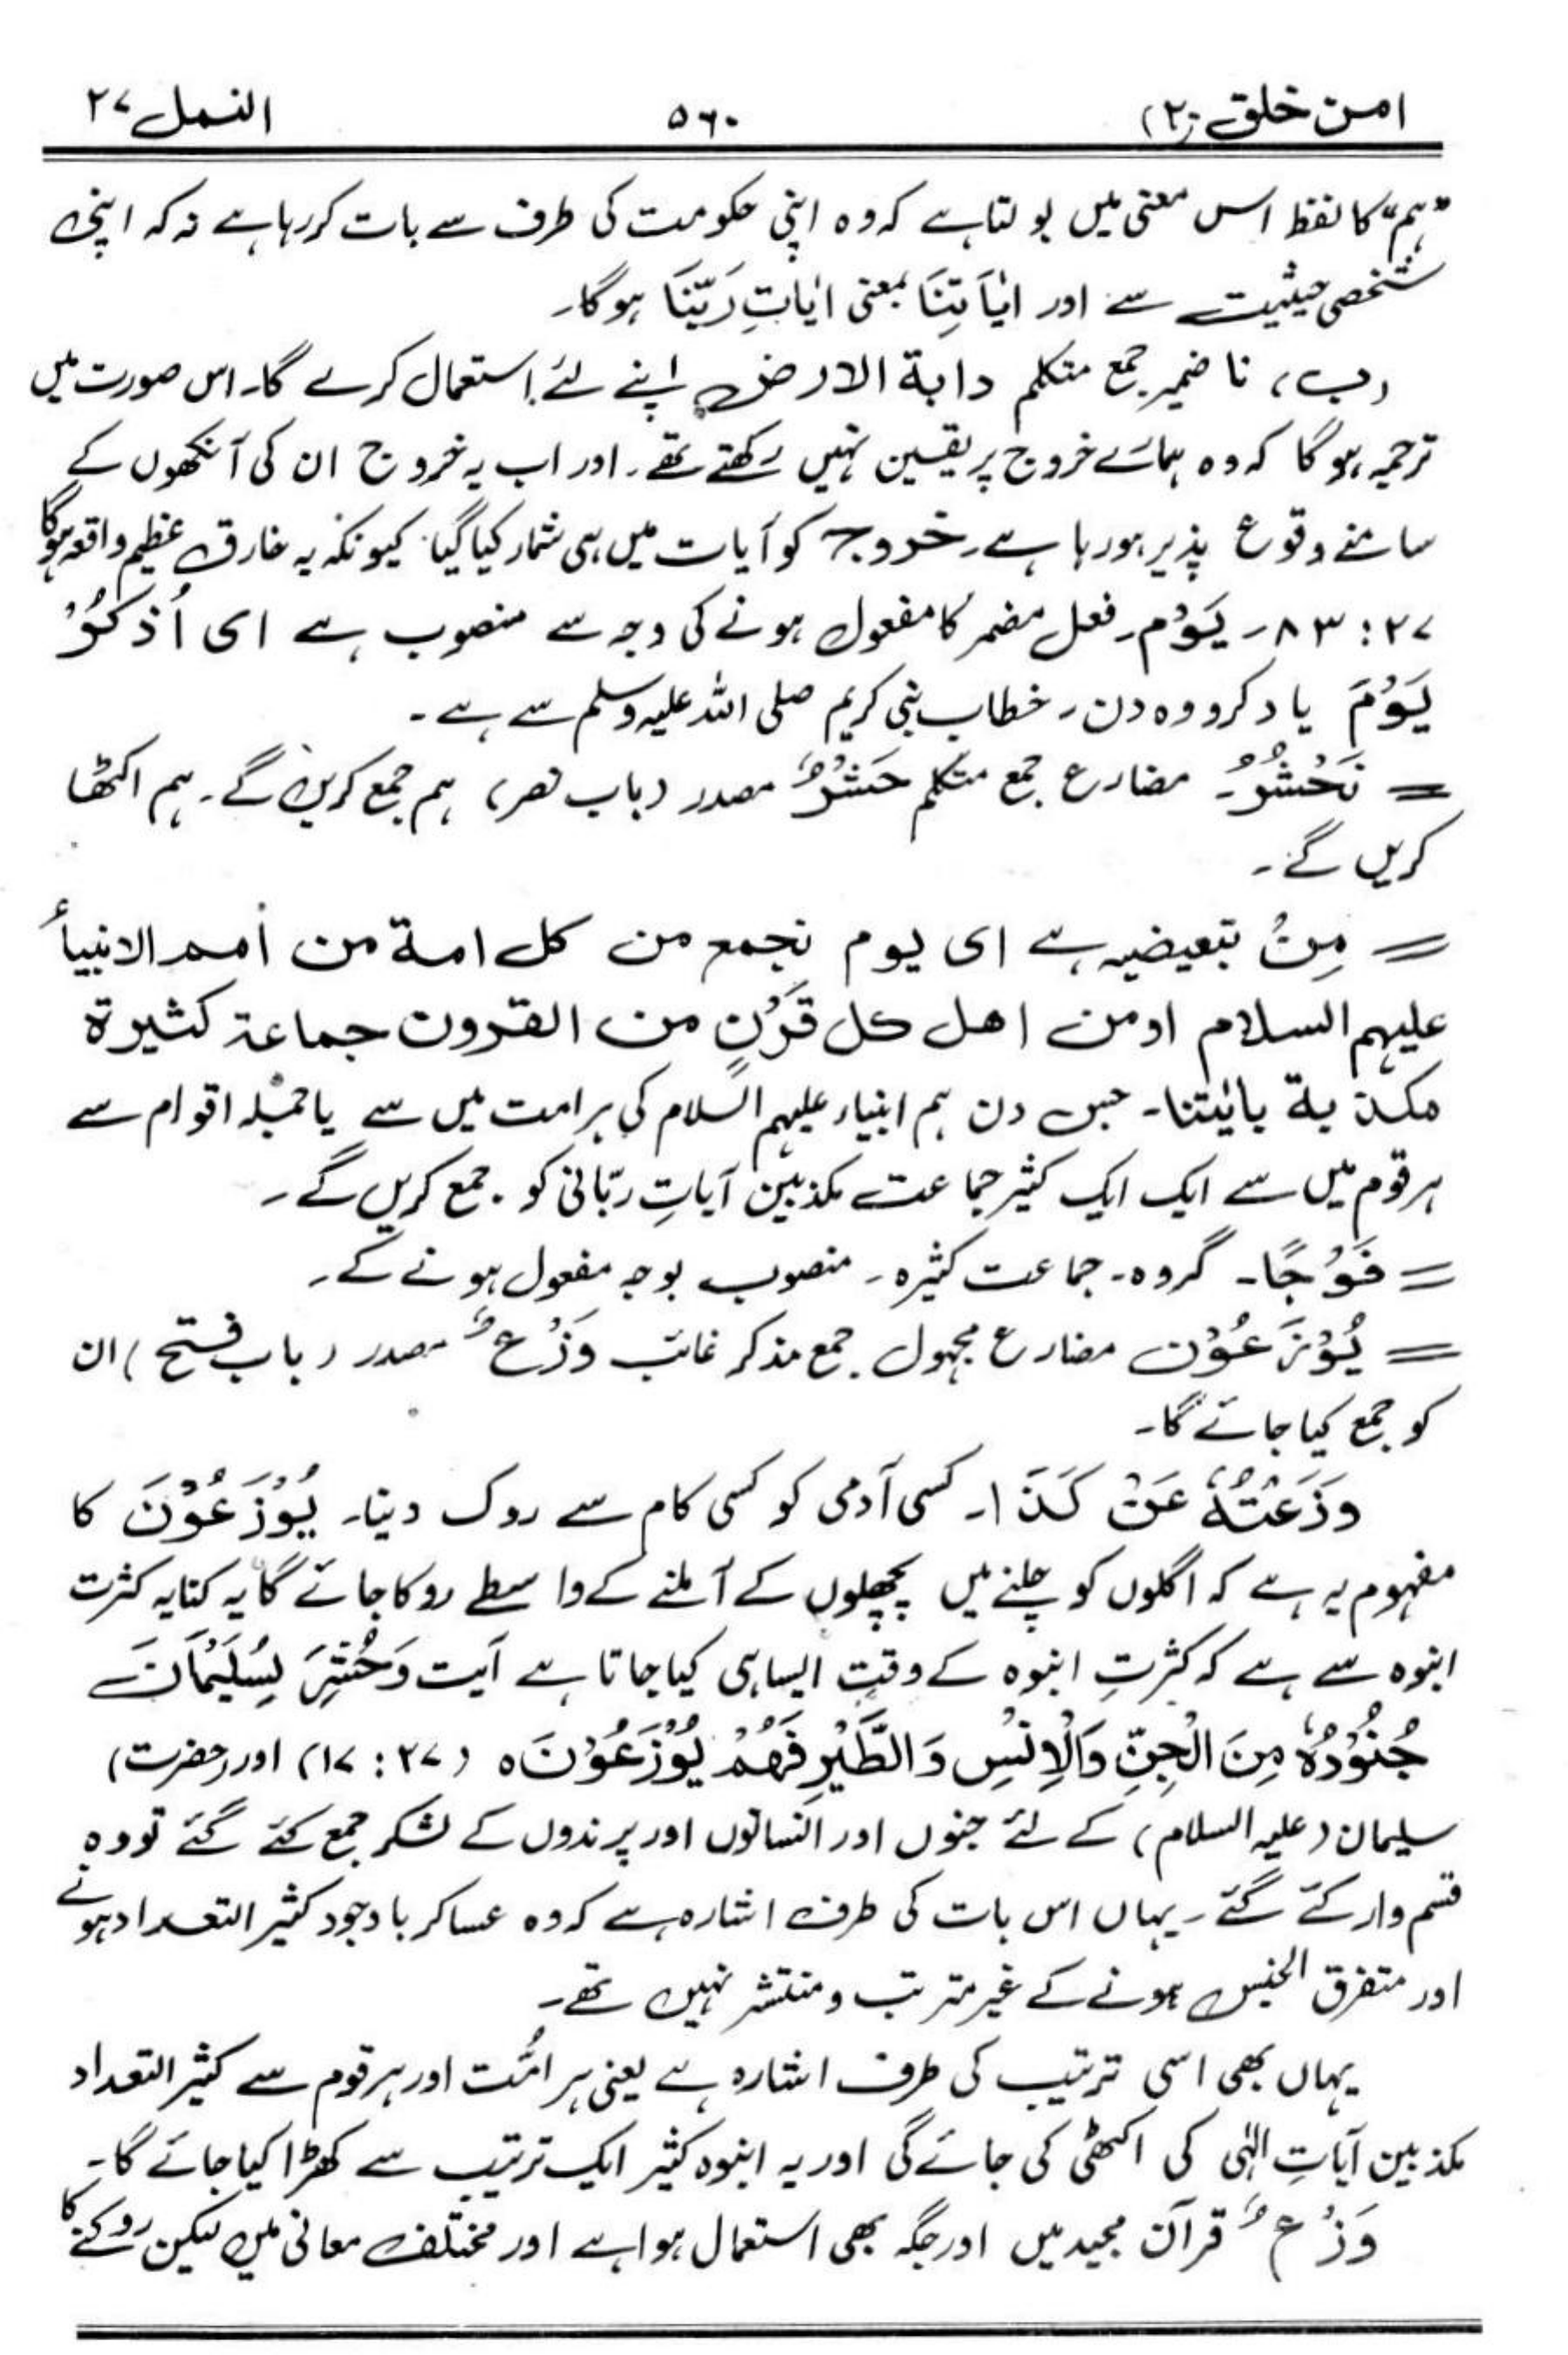 امن خلق (۲۰) ۵۶۰ النمل ۲۷
"ہم" کا لفظ اس معنی میں بولتا ہے کہ وہ اپنی حکومت کی طرف سے بات کر رہا ہے نہ کہ اپنی
شخصی حیثیت سے اور اٰیَاتِنَا بمعنی اٰیَاتِ رَبِّنَا ہوگا۔
(ب) نا ضمیر جمع متکلم دابة الارض اپنے لئے استعمال کرے گا۔ اس صورت میں
ترجمہ ہوگا کہ وہ ہمارے خروج پر یقین نہیں رکھتے تھے۔ اور اب یہ خروج ان کی آنکھوں کے
سامنے وقوع پذیر ہو رہا ہے۔ خروج کو آیات میں ہی شمار کیا گیا کیونکہ یہ خارق عظیم واقعہ ہوگا
۲۷: ۸۳۔ یَوْم۔ فعل مضمر کا مفعول ہونے کی وجہ سے منصوب ہے ای اُذْکُرْ
یَوْمَ یاد کرو وہ دن۔ خطاب نبی کریم صلی اللہ علیہ وسلم سے ہے۔
= نَحْشُرُ۔ مضارع جمع متکلم حَشْرٌ مصدر (باب نصر) ہم جمع کریں گے۔ ہم اکٹھا
کریں گے۔
= مِنْ تبعیضیہ ہے ای یوم نجمع من کل امة من أمم الانبیأء
علیہم السلام اومن اھل کل قَرْنٍ من القرون جماعة کثیرة
مکذبة باٰیٰتنا۔ جس دن ہم انبیاء علیہم السلام کی ہر امت میں سے یا جملہ اقوام سے
ہر قوم میں سے ایک ایک کثیر جماعت مکذبین آیاتِ ربّانی کو جمع کریں گے۔
= فَوْجًا۔ گروہ۔ جماعت کثیرہ۔ منصوب بوجہ مفعول ہونے کے۔
= یُوْزَعُوْنَ مضارع مجہول جمع مذکر غائب وَزْعٌ مصدر (باب فتح) ان
کو جمع کیا جائے گا۔
وَزَعْتُہٗ عَنْ کَذَا۔ کسی آدمی کو کسی کام سے روک دینا۔ یُوْزَعُوْنَ کا
مفہوم یہ ہے کہ اگلوں کو چلنے میں پچھلوں کے آملنے کے واسطے روکا جائے گا یہ کنایہ کثرت
انبوہ سے ہے کہ کثرتِ انبوہ کے وقت ایسا ہی کیا جاتا ہے آیت وَحُشِرَ لِسُلَیْمَانَ
جُنُوْدُہٗ مِنَ الْجِنِّ وَالْاِنْسِ وَالطَّیْرِ فَھُمْ یُوْزَعُوْنَ ہ (۲۷: ۱۷) اور (حضرت)
سلیمان (علیہ السلام) کے لئے جنوں اور انسانوں اور پرندوں کے لشکر جمع کئے گئے تو وہ
قسم وار کئے گئے۔ یہاں اس بات کی طرف اشارہ ہے کہ وہ عساکر باوجود کثیر التعداد ہونے
اور متفرق الجنس ہونے کے غیر مترتب و منتشر نہیں تھے۔
یہاں بھی اسی ترتیب کی طرف اشارہ ہے یعنی ہر امّت اور ہر قوم سے کثیر التعداد
مکذبین آیاتِ الٰہی کی اکٹھی کی جائے گی اور یہ انبوہ کثیر ایک ترتیب سے کھڑا کیا جائے گا۔
وَزْعٌ قرآن مجید میں اور جگہ بھی استعمال ہوا ہے اور مختلف معانی میں لیکن روکنے کا